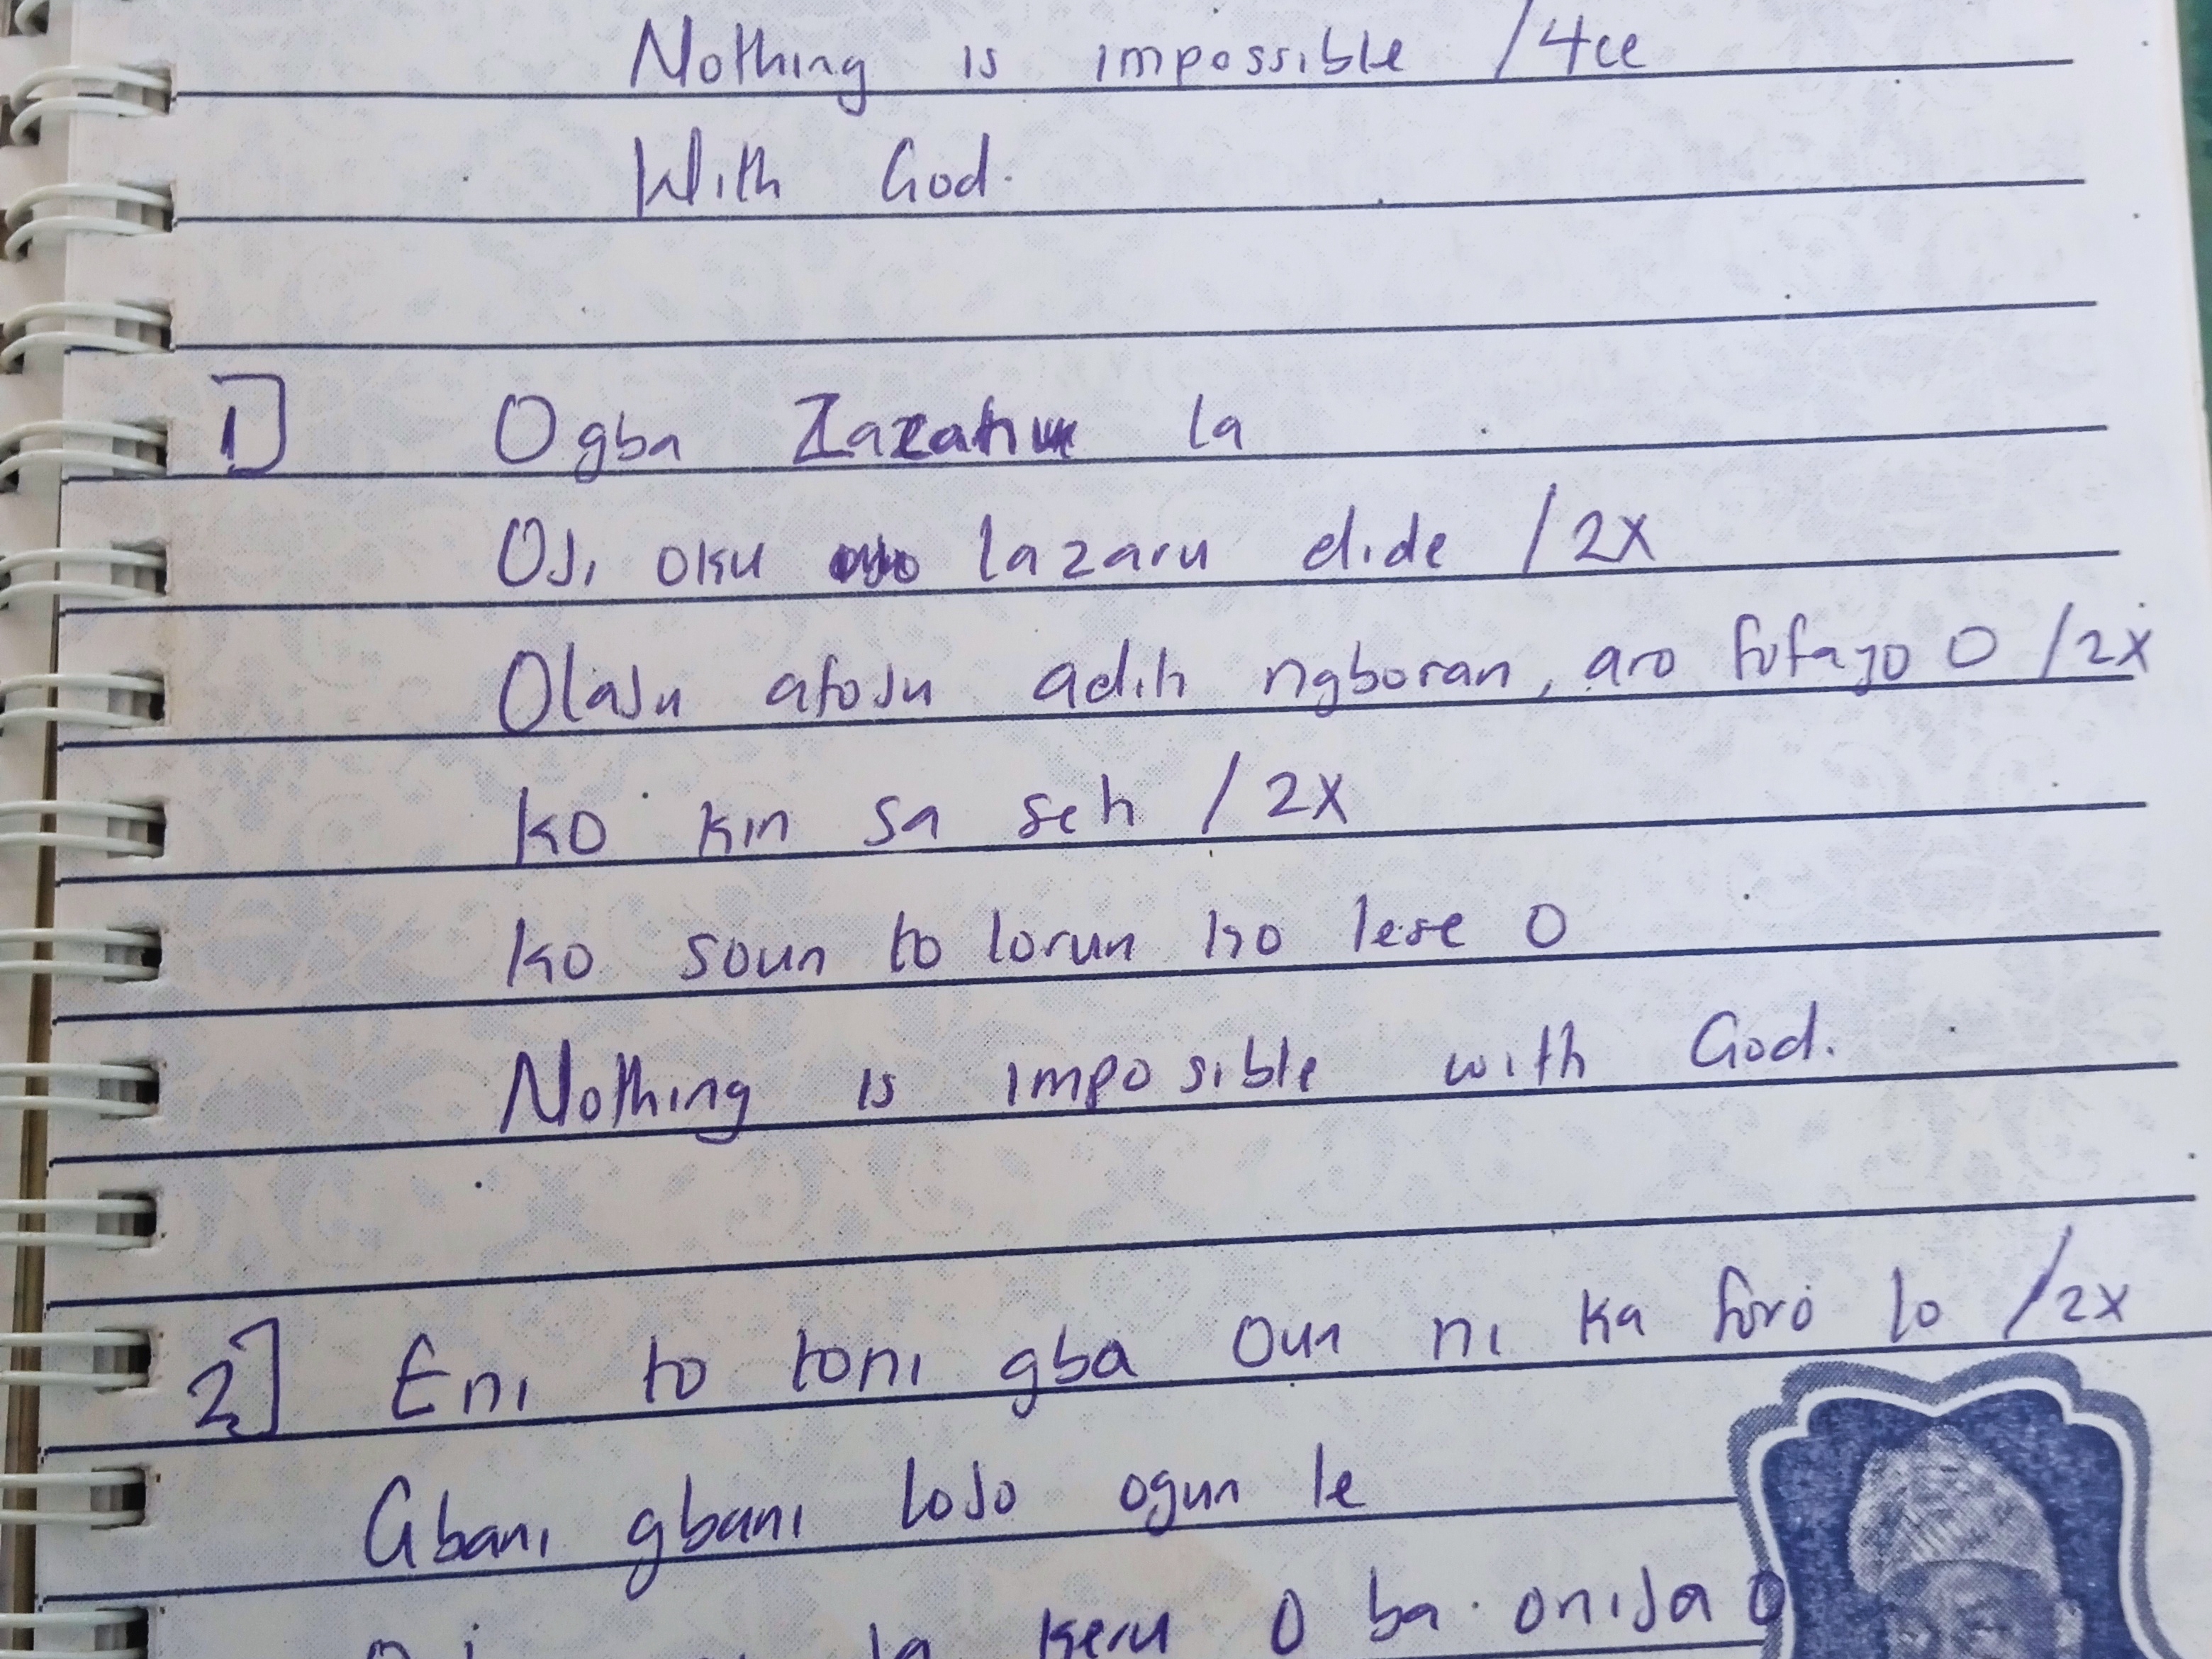 Nothing is impossible /4ce
With God.
1] Ogba la
OJi oku lazaru dide /2x
OlaJu afoJu adih ngboran, aro fofayo O /2x
Ko kin sa seh /2x
Ko soun to lorun ko lese O
Nothing is imposible with God.
2] Eni to toni gba Oun ni ka foro lo /2x
Gbani gbani loJo ogun le
keru O ba oniJa O